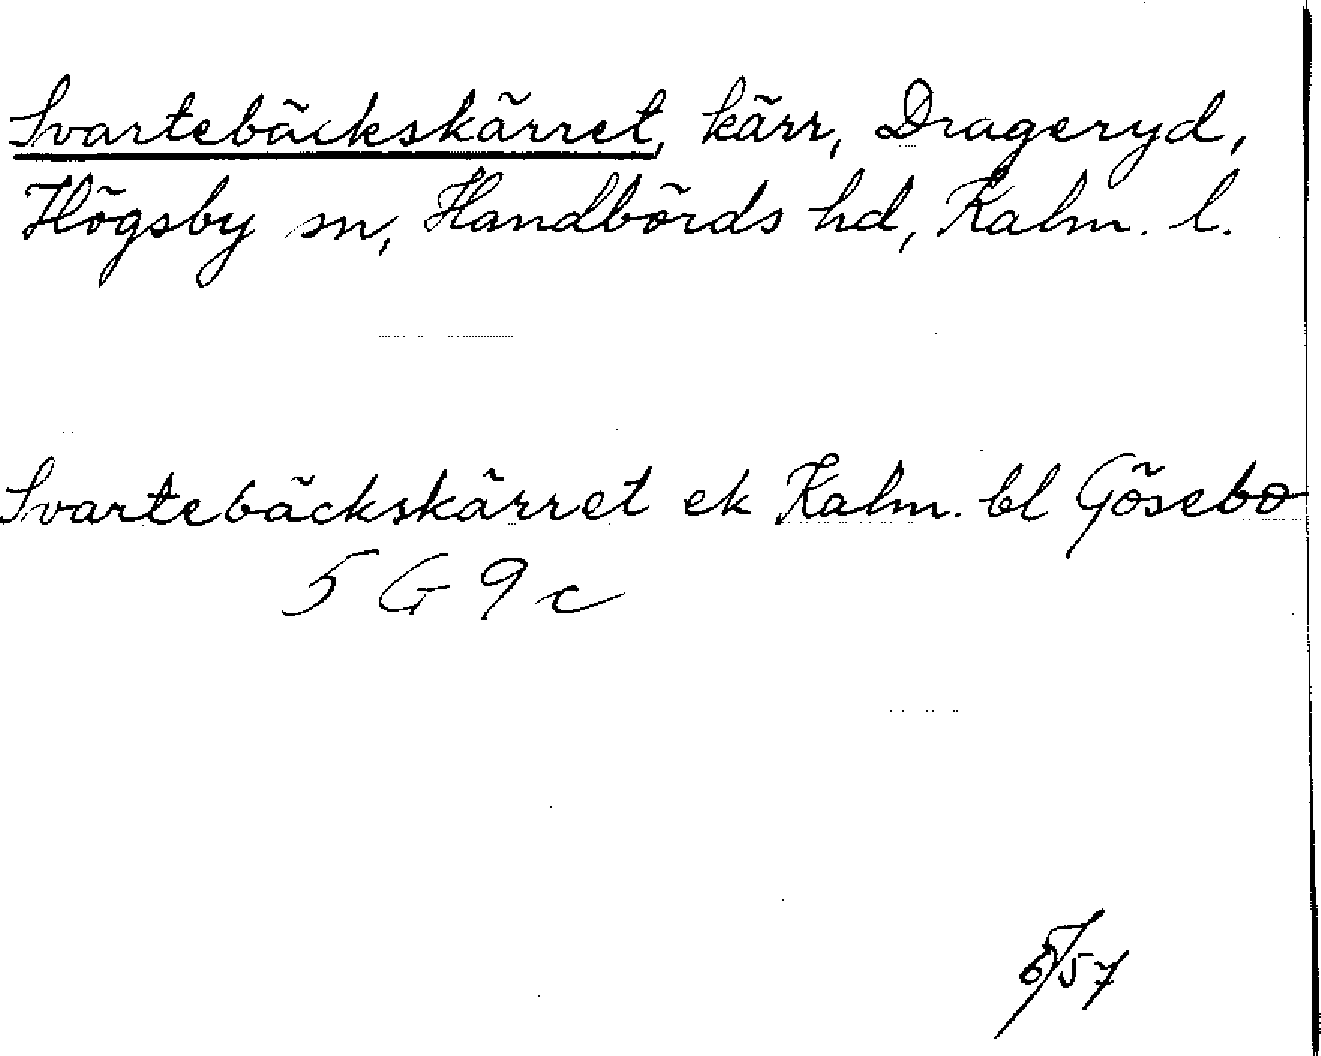 Svartebäckskärret, kärr, Drageryd,
Högsby sn, Handbörds hd, Kalm. l.
Svartebäckskärret ek Kalm. bl Gösebo
5 G 9 c
6/57